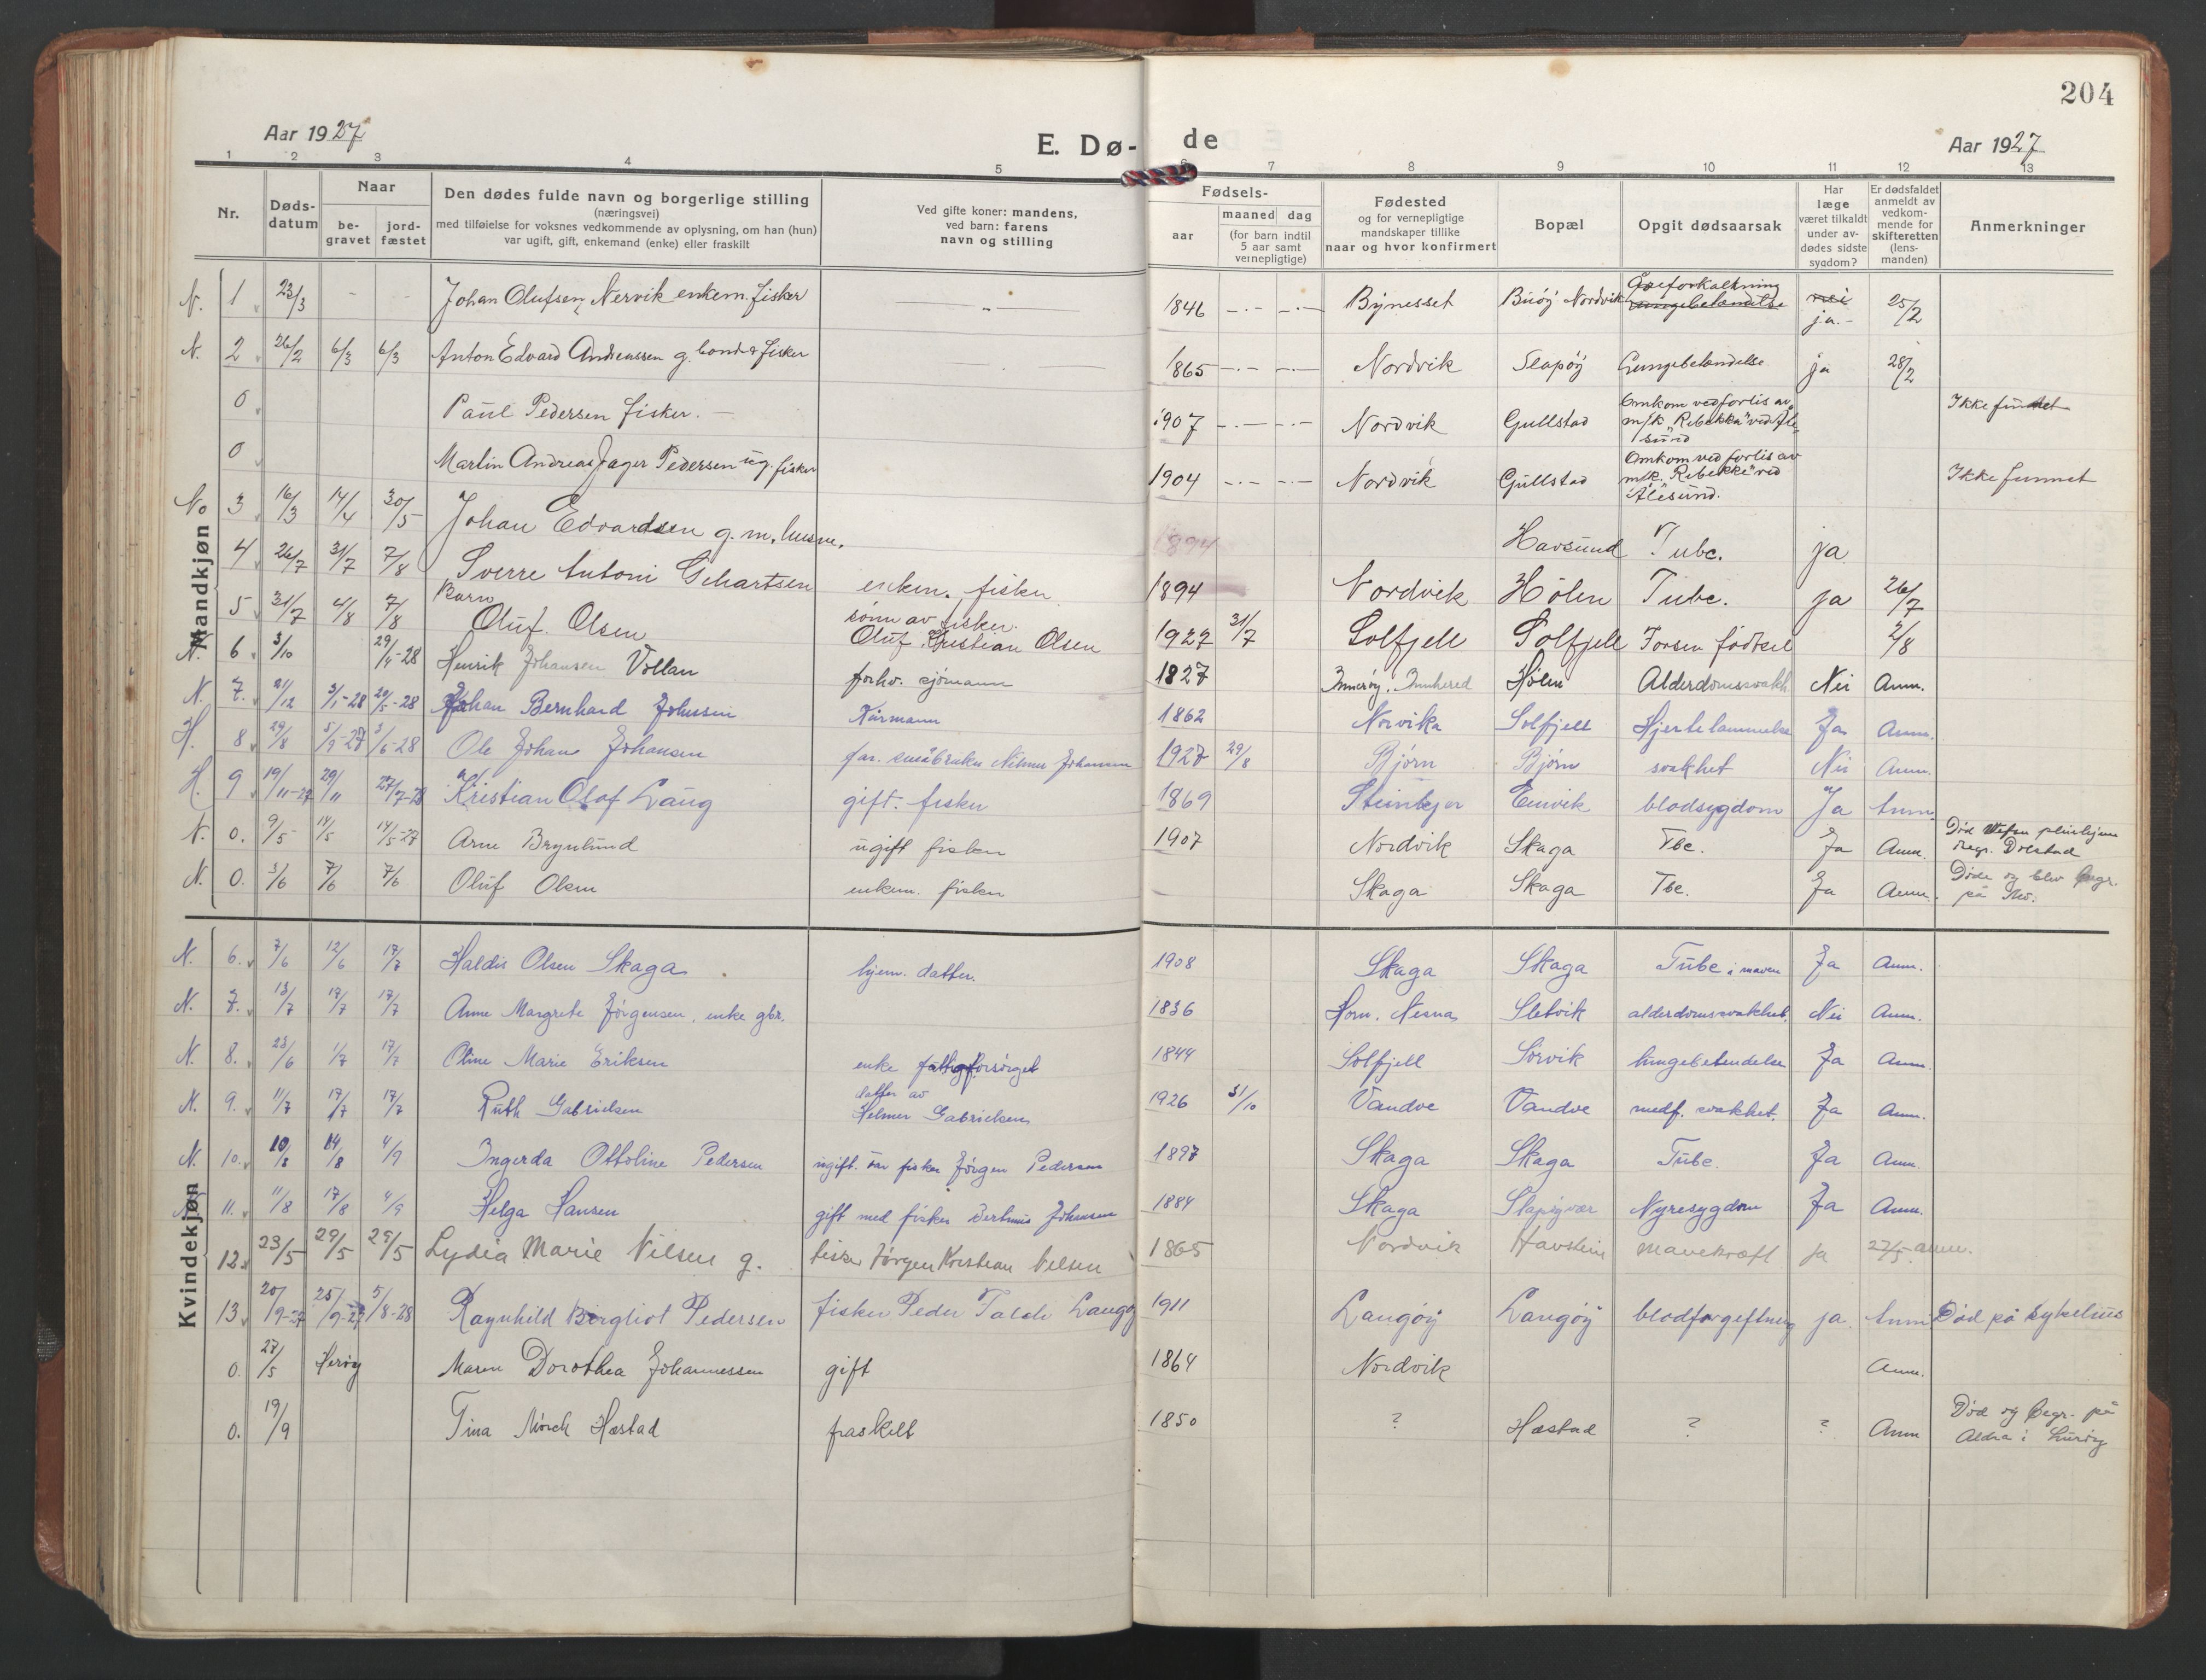 204
Aar 1927
E. Dø-
de
Aar 1927
1 2 3 4 5 6 7 8 9 10 11 12 13
Nr.
Døds-
datum
Naar
be-
gravet
jord-
fæstet
Den dødes fulde navn og borgerlige stilling
(næringsvei)
med tilføielse for voksnes vedkommende av oplysning, om han (hun)
var ugift, gift, enkemand (enke) eller fraskilt
Ved gifte koner: mandens,
ved barn: farens
navn og stilling
Fødsels-
aar
maaned dag
(for barn indtil
5 aar samt
vernepligtige)
Fødested
og for vernepligtige
mandskaper tillike
naar og hvor konfirmert
Bopæl
Opgit dødsaarsak
Har
læge
været tilkaldt
under av-
dødes sidste
sygdom?
Er dødsfaldet
anmeldt av
vedkom-
mende for
skifteretten
(lens-
manden)
Anmerkninger
Mandkjøn
N. 1 23/3 - - Johan Olufsen Nervik enkem. fisker 1846 Bynesset Buøy Nordvik Aareforkalkning Lungebetændelse nei ja.- 25/2
N. 2 26/2 6/3 6/3 Anton Edvard Andreassen g. bonde & fisker 1865 Nordvik Slapøy Lungebetændelse ja 28/2
0 Paul Pedersen fisker. 1907 Nordvik Gullstad Omkom ved forlis av m/k "Rebekka" ved Ålesund Ikke funnet
0 Martin Andreas Jager Pedersen ug. fisker 1904 Nordvik Gullstad Omkom ved forlis av m/k. "Rebekke" ved Ålesund. Ikke funnet
No 3 16/3 14/4 30/5 Johan Edvardsen g. m. husm. 1894 Havsund Tubc. ja
4 26/7 31/7 7/8 Sverre Antoni Gehartsen enkem. fisker 1894 Nordvik Hölen Tubc. ja 26/7
5 31/7 4/8 7/8 Barn Oluf. Olsen sönn av fisker. Oluf Kristian Olsen 1927 31/7 Solfjell Solfjell Forsen födsel 2/8
N. 6 3/10 29/4-28 Henrik Johansen Vollan forhv. sjömann 1827 Innerøy, Innhered Hølen Alderdomssvakh Nei Anm.
N. 7. 21/12 3/1-28 20/5-28 Johan Bernhard Johnsen Kårmann 1862 Norvika Solfjell Hjertelammelse Ja Anm.
H. 8 29/8 5/9-27 3/6-28 Ole Johan Johansen far. småbruker Nilmer Johansen 1927 29/8 Bjørn Bjørn svakhet Nei Anm.
H. 9 19/11-27 29/11 27/7-28 Kristian Olaf Lang gift. fisker 1869 Steinkjer Einvik blodsygdom Ja Anm.
N. 0. 9/5 14/5 14/5-27 Arne Brynlund ugift fisker 1907 Nordvik Skaga Tbc. Ja Anm. Död Vefsn pleiehjem Begr. Dolstad
N. 0. 3/6 7/6 7/6 Oluf Olsen enkem. fisker Skaga Skaga Tbc. Ja Anm. Döde og blev begr. på Mo.
Kvindekjøn
N. 6. 7/6 12/6 17/7 Haldis Olsen Skaga hjem. datter. 1908 Skaga Skaga Tubc i maven Ja Anm.
N. 7. 13/7 17/7 17/7 Anne Margrete Jørgensen, enke gbr. 1836 Horn. Nesna Sletvik alderdomssvakhet. Nei Anm.
N. 8. 23/6 1/7 17/7 Oline Marie Eriksen enke fattigforsörget 1844 Solfjell Sörvik lungebetendelse Ja Anm.
N. 9. 11/7 17/7 17/7 Ruth Gabrielsen datter av Helmer Gabrielsen 1926 31/10 Vandve Vandve medf. svakhet. Ja Anm.
N. 10. 10/8 14/8 4/9 Ingerda Ottoline Pedersen ugift. av fisker Jörgen Pedersen 1897 Skaga Skaga Tubc. Ja Anm.
11. 11/8 17/8 4/9 Helga Hansen gift med fisker Bertinus Johansen 1884 Skaga Slapøyvær Nyresygdom Ja Anm.
12. 23/5 29/5 29/5 Lydia Marie Nilsen g. fisker Jörgen Kristian Nilsen 1865 Nordvik Havstein mavekræft ja 27/5. anm.
13 20/9-27 25/9-27 5/8-28 Ragnhild Bergliot Pedersen fisker Peder Falch Langøy 1911 Langöy Langöy blodforgiftning ja. Anm Död på sykehus
0. 27/5 Herøy Maren Dorothea Johannessen gift 1864 Nordvik Anm.
0. 19/9 Tina Mörch Hæstad fraskilt 1850 ? Hæstad ? ? Anm Död og Begr. på Aldra i Lurøy